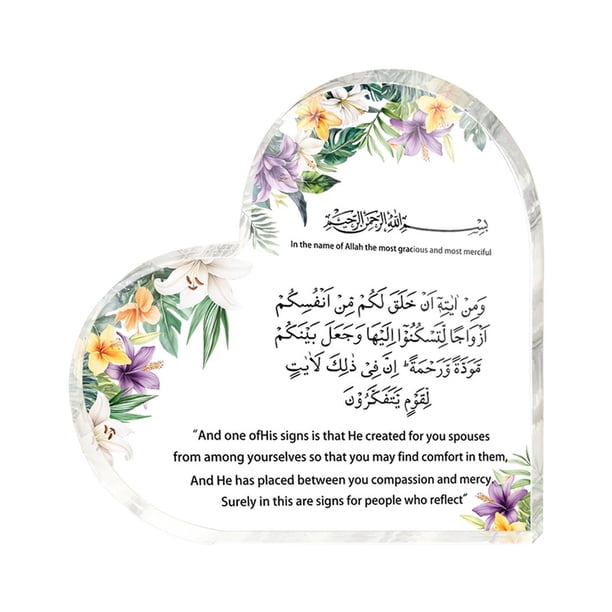 بِسْمِ اللهِ الرَّحْمٰنِ الرَّحِيْمِ
In the name of Allah the most gracious and most merciful
وَمِنْ اٰيٰتِهٖٓ اَنْ خَلَقَ لَكُمْ مِّنْ اَنْفُسِكُمْ
اَزْوَاجًا لِّتَسْكُنُوْٓا اِلَيْهَا وَجَعَلَ بَيْنَكُمْ
مَّوَدَّةً وَّرَحْمَةً ؕ اِنَّ فِيْ ذٰلِكَ لَاٰيٰتٍ
لِّقَوْمٍ يَّتَفَكَّرُوْنَ
“And one ofHis signs is that He created for you spouses
from among yourselves so that you may find comfort in them,
And He has placed between you compassion and mercy.
Surely in this are signs for people who reflect”